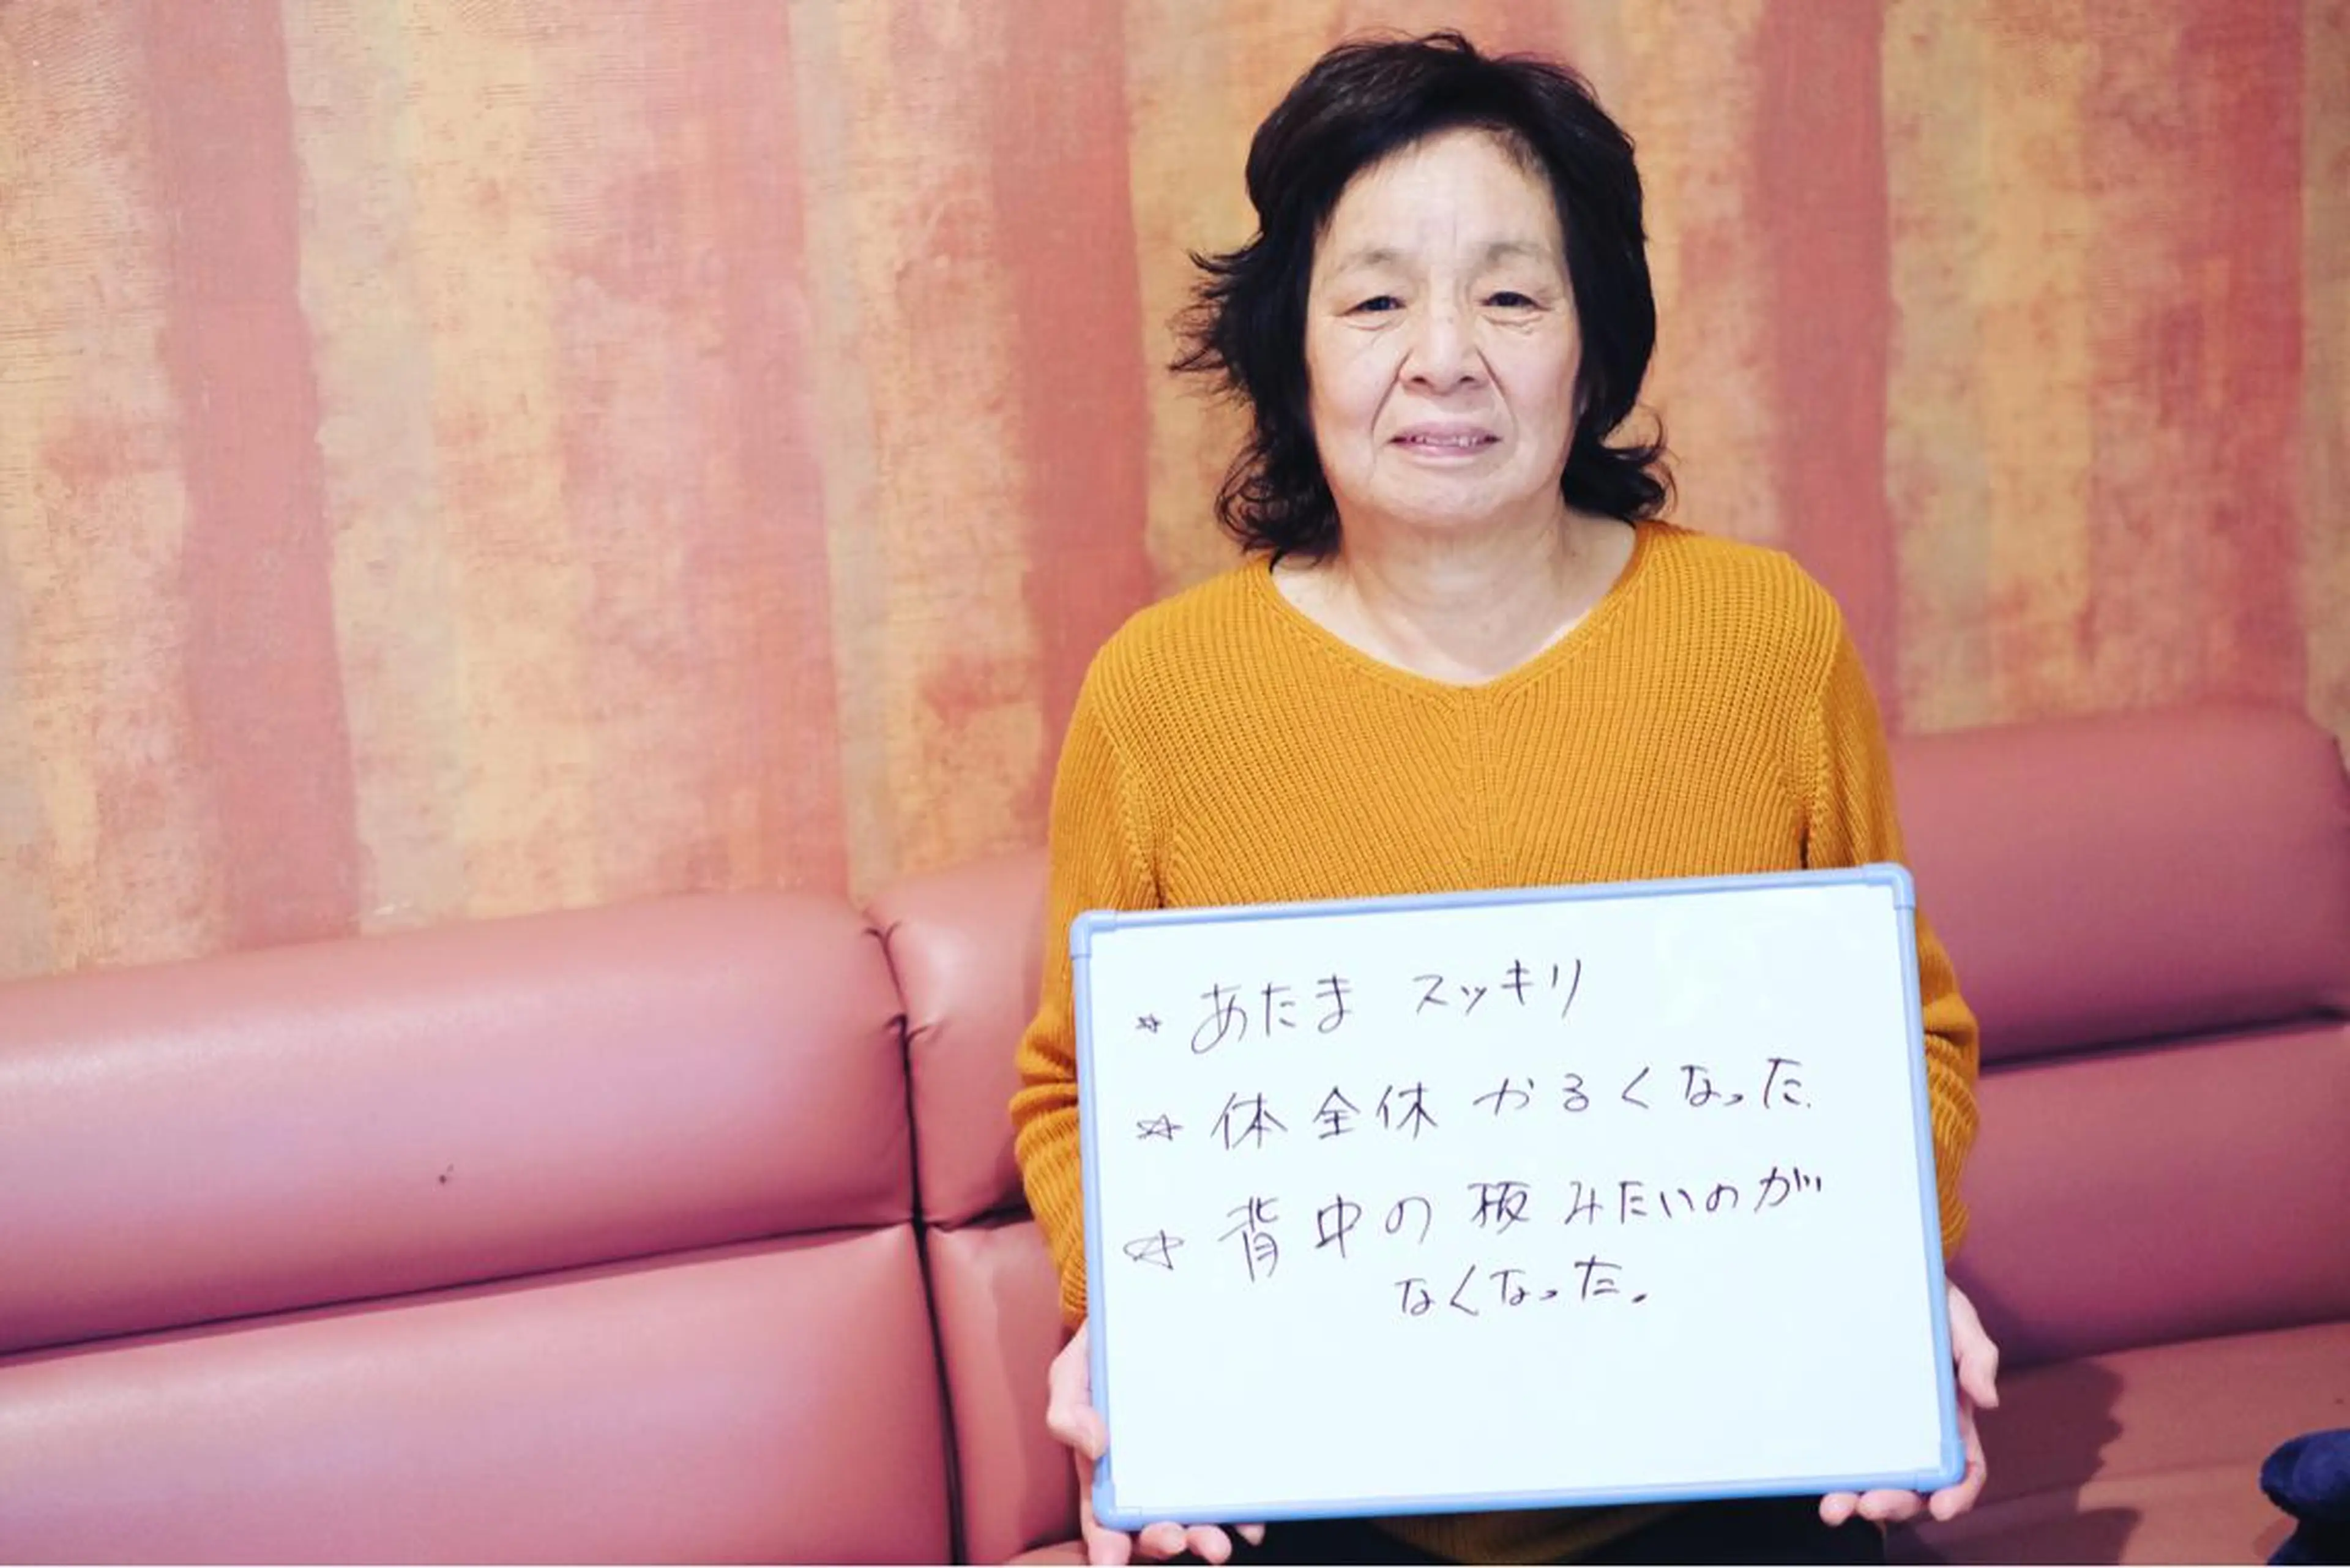 ☆ あたま スッキリ
☆ 体全体 かるくなった.
☆ 背中の 板みたいのが
なくなった。